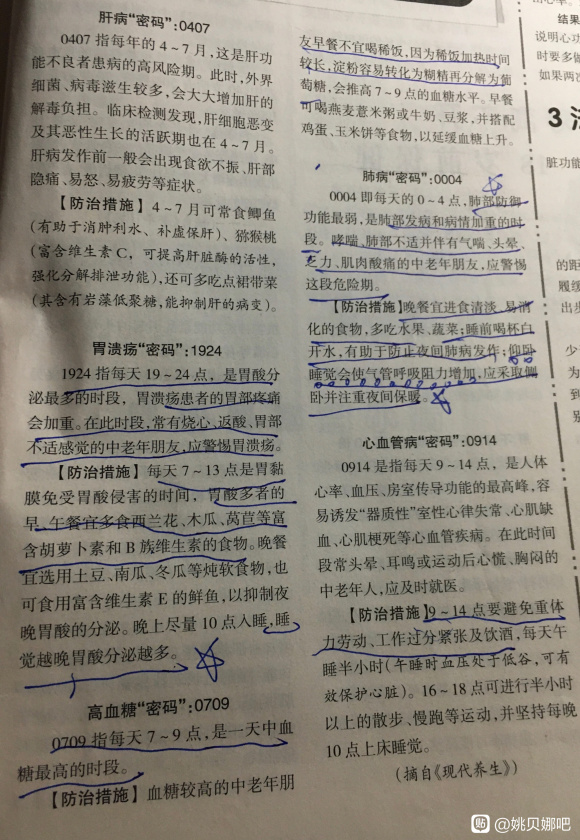 肝病“密码”:0407
0407 指每年的 4～7 月,这是肝功
能不良者患病的高风险期。此时,外界
细菌、病毒滋生较多,会大大增加肝的
解毒负担。临床检测发现,肝细胞恶变
及其恶性生长的活跃期也在 4～7 月。
肝病发作前一般会出现食欲不振、肝部
隐痛、易怒、易疲劳等症状。
【防治措施】4～7 月可常食鲫鱼
(有助于消肿利水、补虚保肝)、猕猴桃
(富含维生素 C，可提高肝脏酶的活性，
强化分解排泄功能)，还可多吃点裙带菜
(其含有岩藻低聚糖,能抑制肝的病变)。
胃溃疡“密码”:1924
1924 指每天 19～24 点，是胃酸分
泌最多的时段，胃溃疡患者的胃部疼痛
会加重。在此时段,常有烧心、返酸、胃部
不适感觉的中老年朋友,应警惕胃溃疡。
【防治措施】每天 7～13 点是胃黏
膜免受胃酸侵害的时间，胃酸多者的
早、午餐宜多食西兰花、木瓜、莴苣等富
含胡萝卜素和 B 族维生素的食物。晚餐
宜选用土豆、南瓜、冬瓜等炖软食物,也
可食用富含维生素 E 的鲜鱼,以抑制夜
晚胃酸的分泌。晚上尽量 10 点入睡,睡
觉越晚胃酸分泌越多。
高血糖“密码”:0709
0709 指每天 7～9 点,是一天中血
糖最高的时段。
【防治措施】血糖较高的中老年朋
友早餐不宜喝稀饭,因为稀饭加热时间
较长,淀粉容易转化为糊精再分解为葡
萄糖,会推高 7～9 点的血糖水平。早餐
可喝燕麦薏米粥或牛奶、豆浆，并搭配
鸡蛋、玉米饼等食物,以延缓血糖上升。
肺病“密码”:0004
0004 即每天的 0～4 点,肺部防御
功能最弱,是肺部发病和病情加重的时
段。哮喘、肺部不适并伴有气喘、头晕、
乏力、肌肉酸痛的中老年朋友，应警惕
这段危险期。
【防治措施】晚餐宜进食清淡、易消
化的食物,多吃水果、蔬菜;睡前喝杯白
开水,有助于防止夜间肺病发作;仰卧
睡觉会使气管呼吸阻力增加,应采取侧
卧并注重夜间保暖。
心血管病“密码”:0914
0914 是指每天 9～14 点，是人体
心率、血压、房室传导功能的最高峰,容
易诱发“器质性”室性心律失常、心肌缺
血、心肌梗死等心血管疾病。在此时间
段常头晕、耳鸣或运动后心慌、胸闷的
中老年人,应及时就医。
【防治措施】9～14 点要避免重体
力劳动、工作过分紧张及饮酒,每天午
睡半小时(午睡时血压处于低谷,可有
效保护心脏)。16～18 点可进行半小时
以上的散步、慢跑等运动,并坚持每晚
10 点上床睡觉。
(摘自《现代养生》)
结果
说明心功
时要多做
如果两次
3
脏功能
的距
履缓
出步
少
为
到
别
贴 @姚贝娜吧